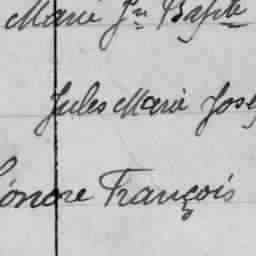 Marie Jn Bapte
Jules Marie Jose
éonore François